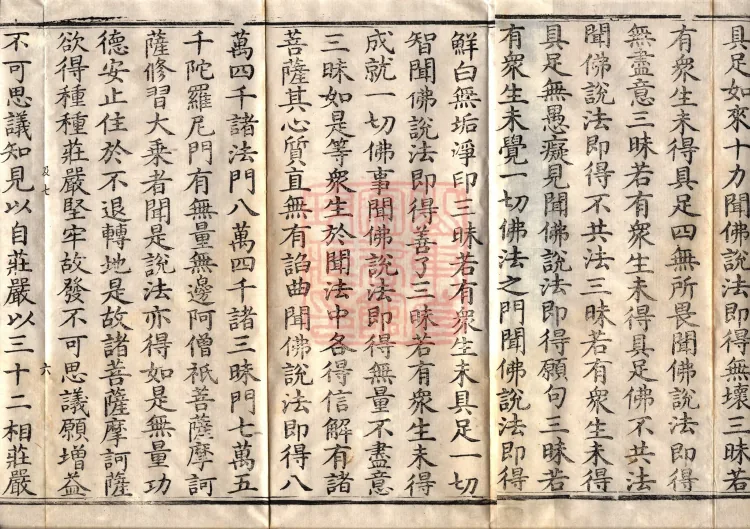 具足如來十力聞佛說法即得無壞三昧若
有衆生未得具足四無所畏聞佛說法即得
無盡意三昧若有衆生未得具足佛不共法
聞佛說法即得不共法三昧若有衆生未得
具足無愚癡見聞佛說法即得願句三昧若
有衆生未覺一切佛法之門聞佛說法即得
鮮白無垢淨印三昧若有衆生未具足一切
智聞佛說法即得善了三昧若有衆生未得
成就一切佛事聞佛說法即得無量不盡意
三昧如是等衆生於聞法中各得信解有諸
菩薩其心質直無有諂曲聞佛說法即得八
萬四千諸法門八萬四千諸三昧門七萬五
千陀羅尼門有無量無邊阿僧祇菩薩摩訶
薩修習大乘者聞是說法亦得如是無量功
德安止住於不退轉地是故諸菩薩摩訶薩
欲得種種莊嚴堅牢故發不可思議願增益
不可思議知見以自莊嚴以三十二相莊嚴
七
六